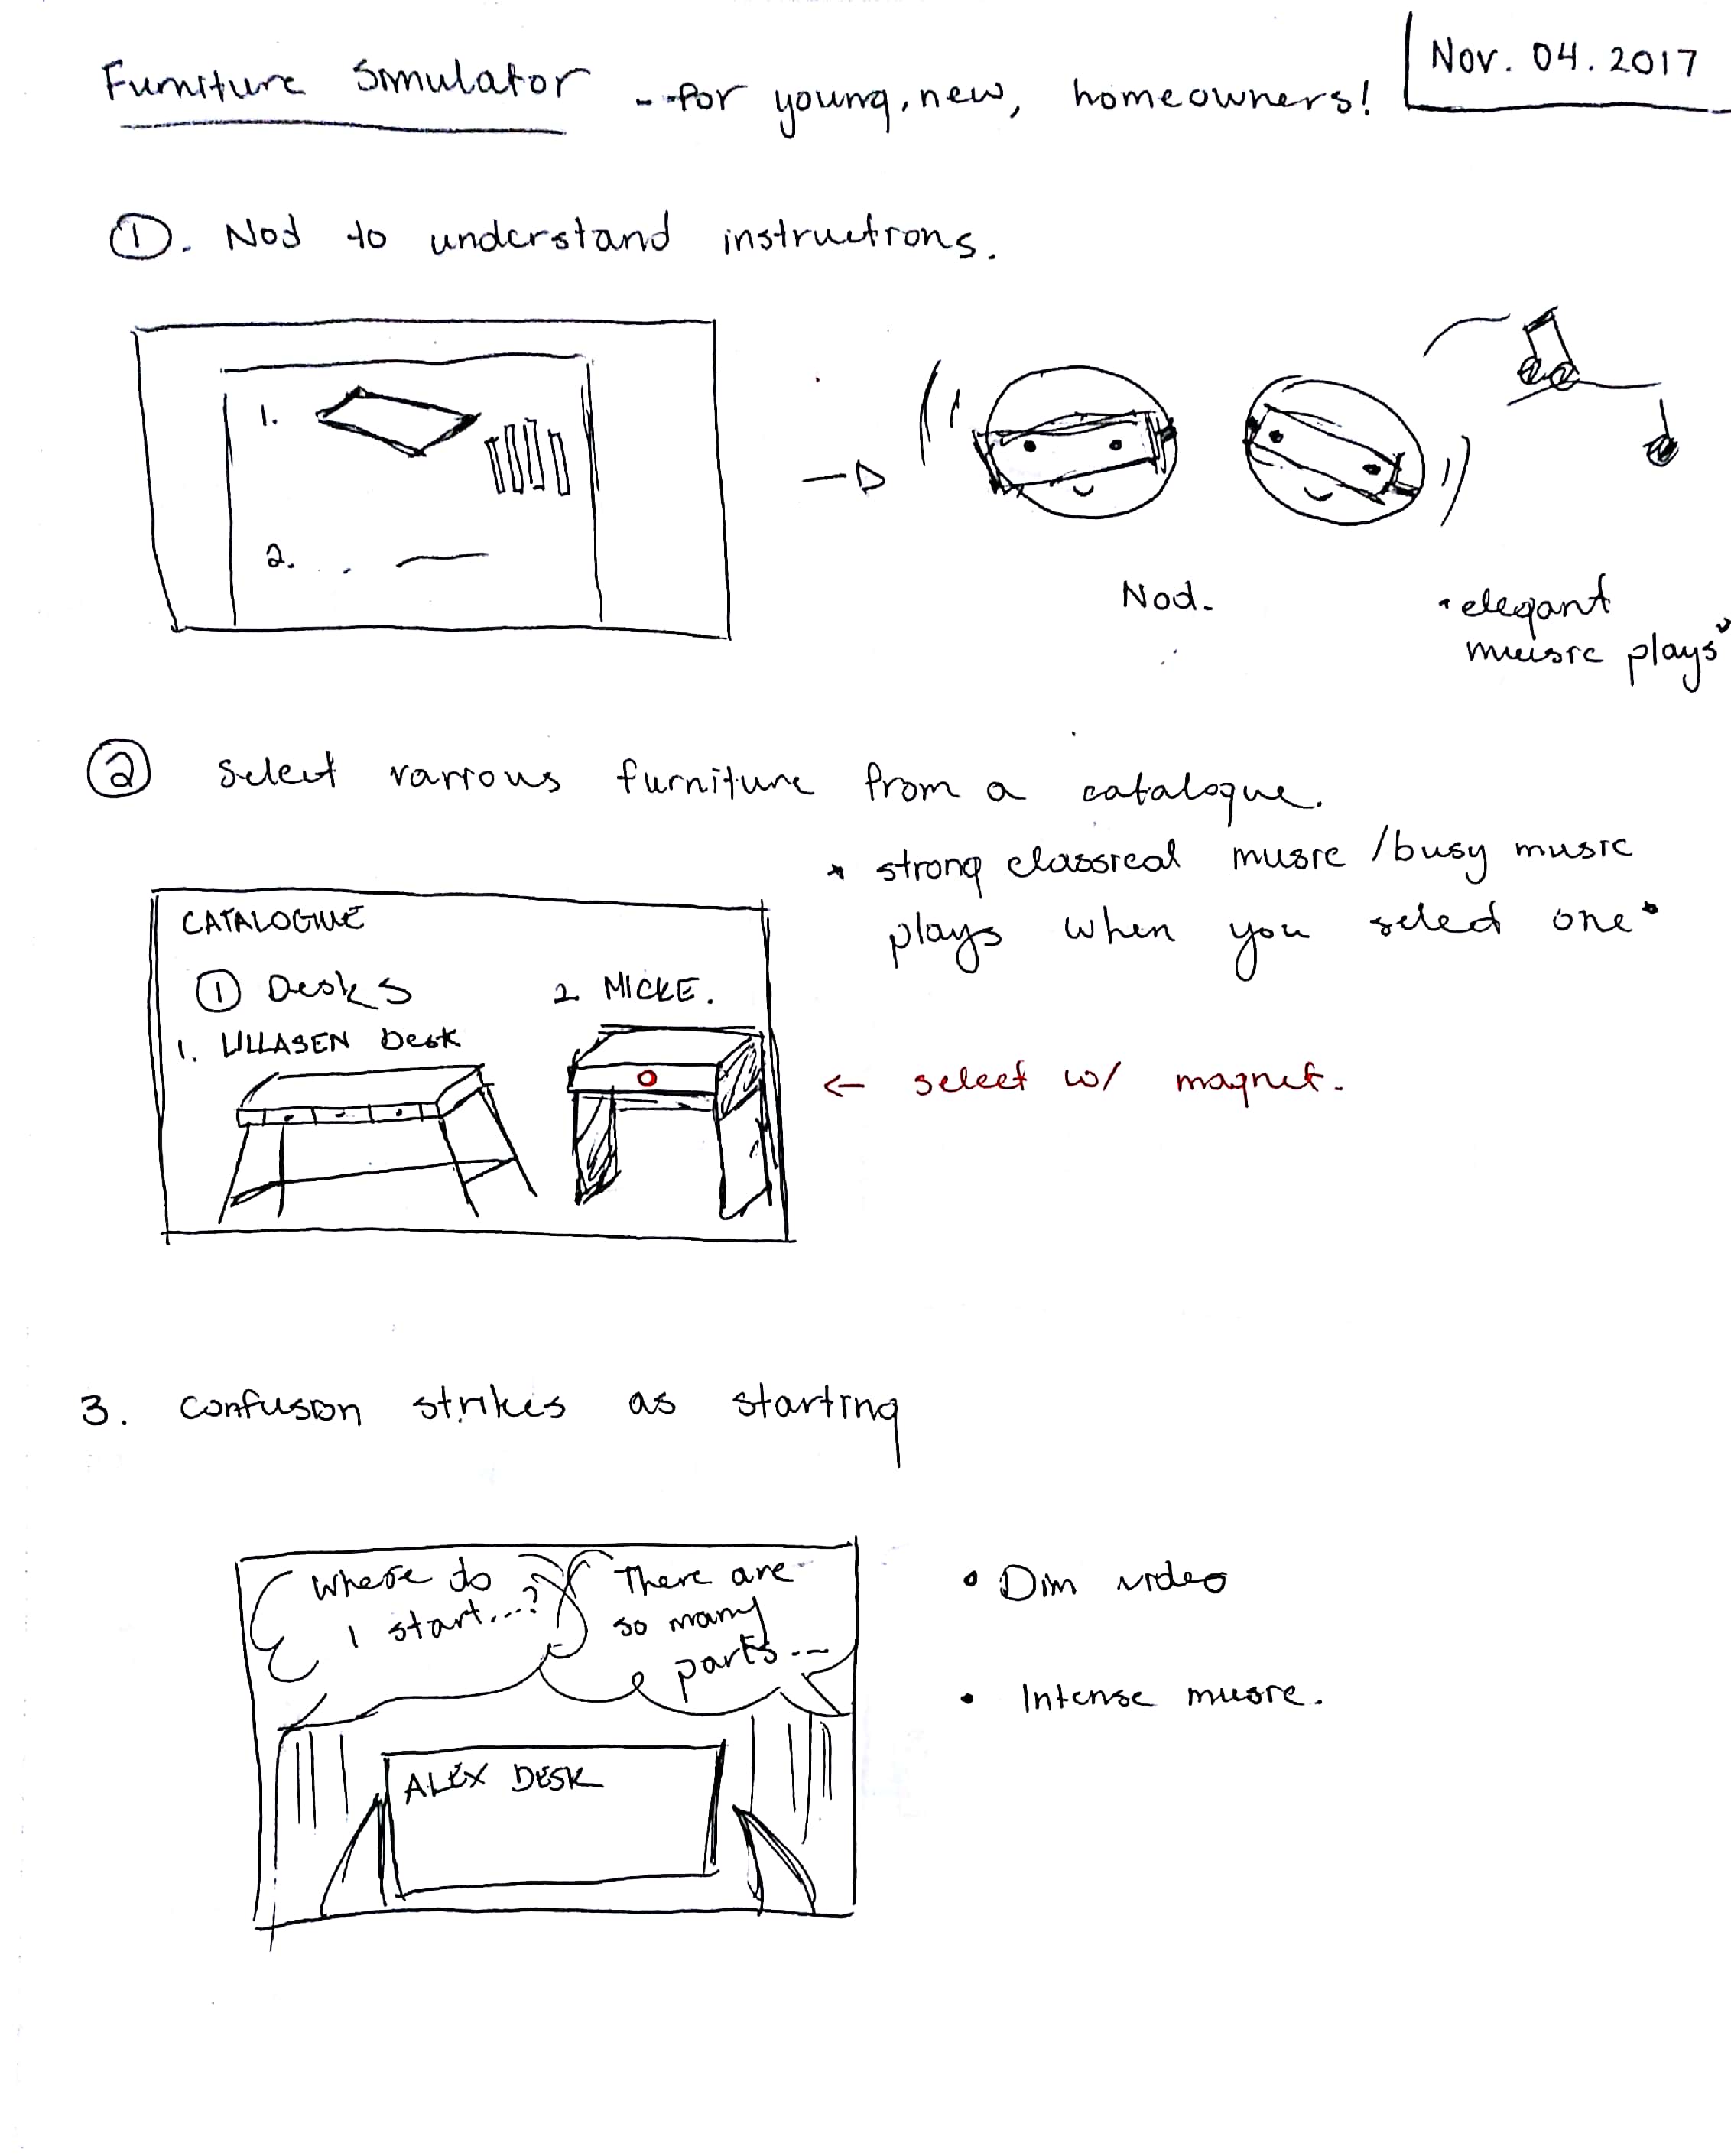 Furniture Simulator --for young, new, homeowners!
Nov. 04. 2017
①. Nod to understand instructions.
1.
2. . . —
Nod.
* elegant
music plays*
② select various furniture from a catalogue.
* strong classical music / busy music
plays when you select one *
CATALOGUE
① Desks
1. LILLASEN Desk
2 MICKE.
← select w/ magnet.
3. confusion strikes as starting
Where do
I start...?
There are
so many
parts...
ALEX DESK
• Dim video
• Intense music.